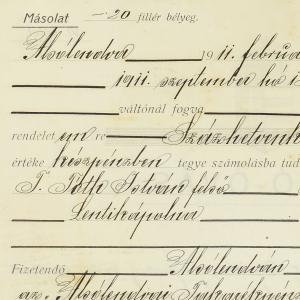 Másolat — 20 fillér bélyeg.
Alsólendva 1911. február
1911. szeptember hó 1
váltónál fogva
rendelet em re Százhetvenk
értéke készpénzben tegye számolásba tud
T. Tóth István felső
Lentikápolna
Fizetendő Alsólendván
az „Alsólendvai Takarékpénz